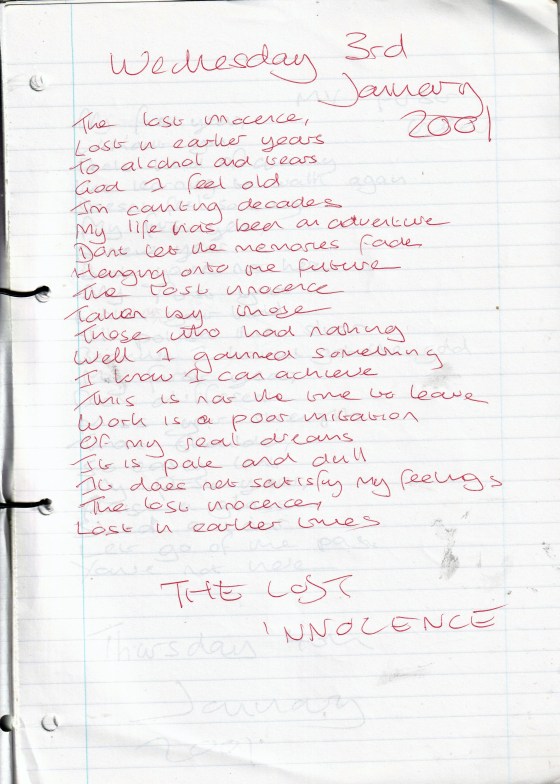 Wednesday 3rd
January
2001
The lost inocence,
Lost in earlier years
To alcohol and tears
God I feel old
Im counting decades
My life has been an adventure
Dont let the memories fade
Hanging onto the future
The lost inocence
Taken by those
Those who had nothing
Well I gained something
I know I can achieve
This is not the time to leave
Work is a poor imitation
Of my real dreams
It is pale and dull
It does not satisfy my feelings
The lost inocence,
Lost in earlier times
THE LOST
INNOCENCE
let go of the past
You're not here
Thursday
January
2001